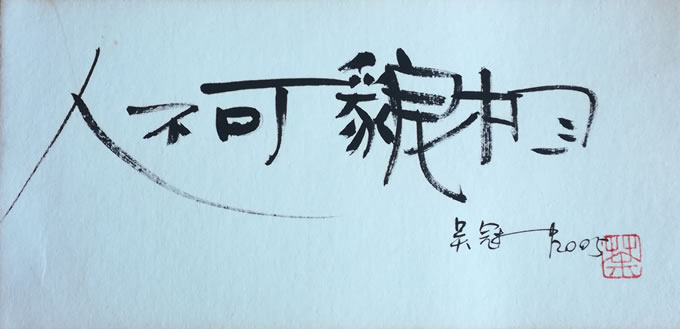 人不可貌相
吴冠中 2005
荼